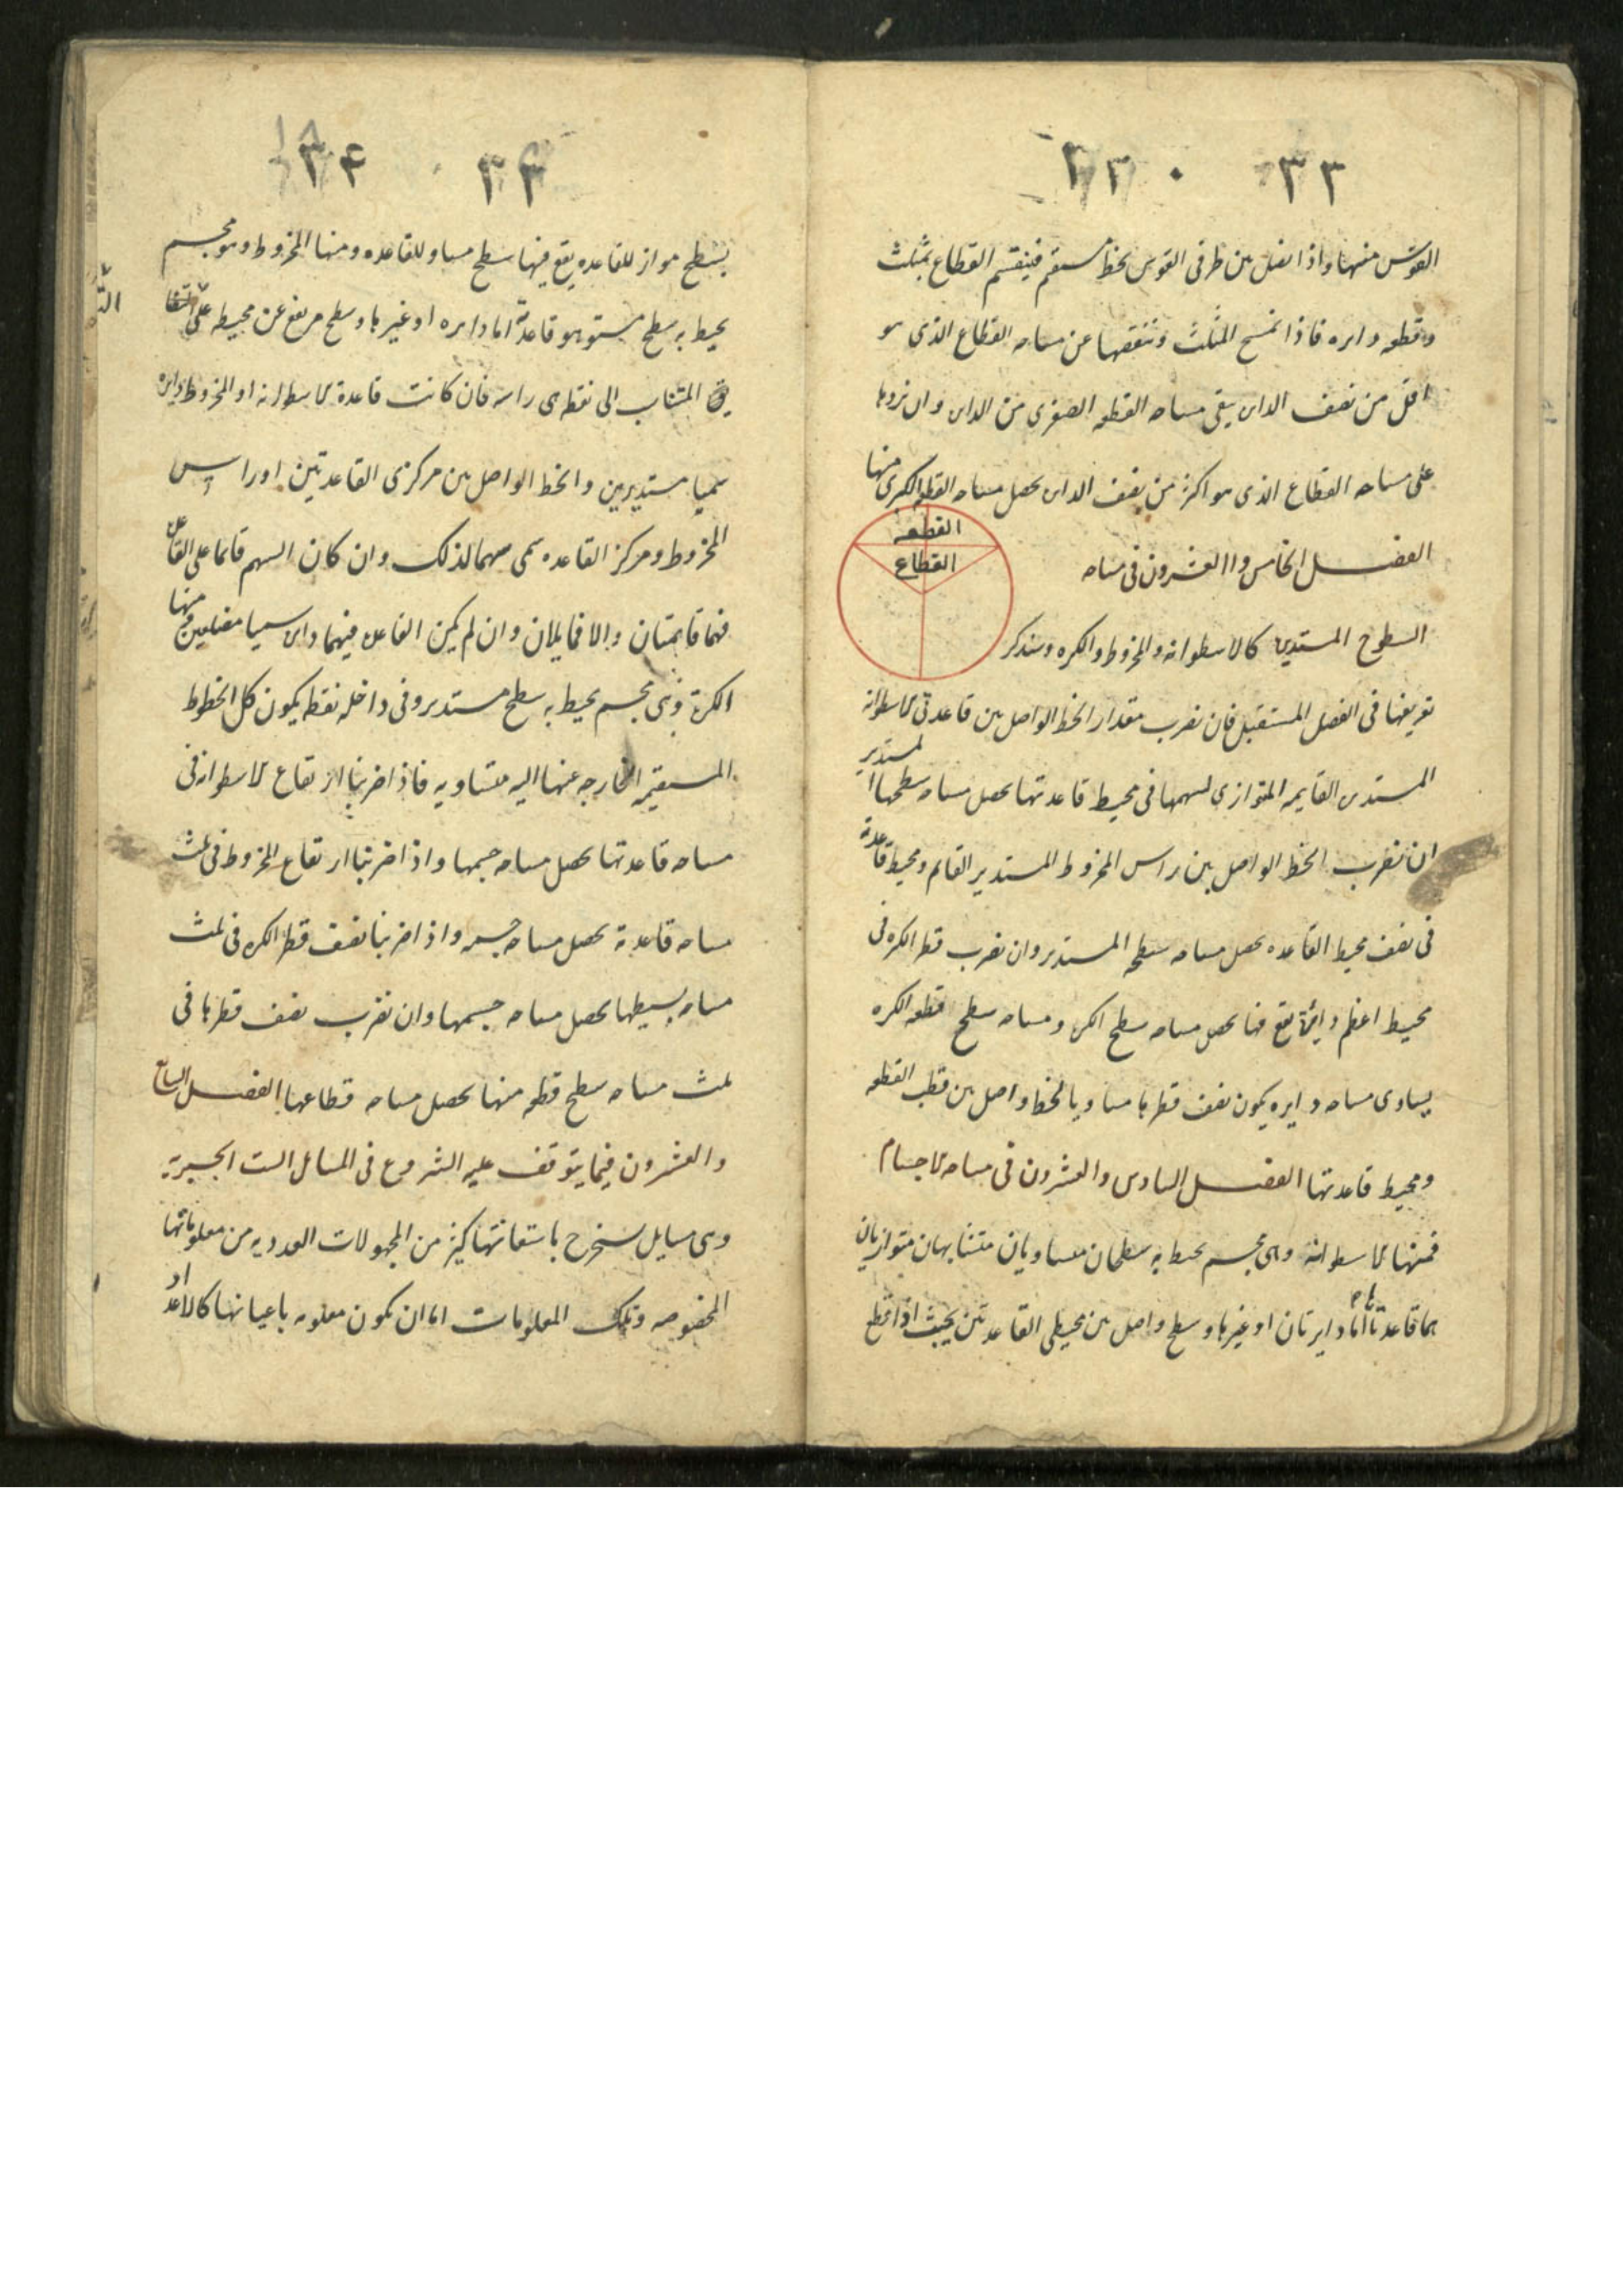 ٣٣ ٠ ٣٣
القوس منها واذا نصل بين طرفى القوس بخط مستقيم فينقسم القطاع بمثلث
وقطعه دايره فاذا نمسح المثلث وننقصها عن مساحه القطاع الذى هو
اقل من نصف الدايره يبقى مساحه القطعه الصغرى من الدايره وان نزيدها
على مساحه القطاع الذى هو اكثر من نصف الدايره يحصل مساحه القطعه الكبرى منها
القطعه
القطاع
الفصل الخامس واالعشرون فى مساحه
السطوح المستديره كالاسطوانه والمخروط والكره وسنذكر
تعريفها فى الفصل المستقبل فان نضرب مقدار الخط الواصل بين قاعدتى الاسطوانه
المستديره القايمه المتوازي لسهمها فى محيط قاعدتها يحصل مساحه سطحها المستدير
ان نضرب الخط الواصل بين راس المخروط المستدير القائم ومحيط قاعدته
فى نصف محيط القاعده يحصل مساحه سطحه المستدير وان نضرب قطر الكره فى
محيط اعظم دايرة يقع فيها يحصل مساحه سطح الكره ومساحه سطح قطعه الكره
يساوى مساحه دايره يكون نصف قطرها مساويا لخط واصل بين قطب القطعه
ومحيط قاعدتها الفصل السادس والعشرون فى مساحه الاجسام
فمنها الاسطوانه وهى مجسم يحيط به سطحان متساويان متشابهان متوازيان
هما قاعدتاه اما دايرتان او غيرها وسطح واصل بين محيطى القاعدتين بحيث اذا قطع
٣٤ ٣٤
بسطح مواز للقاعده يقع فيها سطح مساو للقاعده ومنها المخروط وهو مجسم
يحيط به سطح مستو هو قاعدته اما دايره او غيرها وسطح مرتفع عن محيطه على
المتناسب الى نقطه هى راسه فان كانت قاعدة الاسطوانه او المخروط دايره
سميا مستديرين والخط الواصل بين مركزى القاعدتين او راس
المخروط ومركز القاعده سمى سهما لذلك وان كان السهم قائما على القاعده
فهما قايمتان والا فمايلان وان لم يكن القاعده فيهما دايره سميا مضلعين ومنها
الكرة وهى مجسم يحيط به سطح مستدير وفى داخله نقطه يكون كل الخطوط
المستقيمه الخارجه عنها اليه متساويه فاذا ضربنا ارتفاع الاسطوانه فى
مساحه قاعدتها يحصل مساحه جسمها واذا ضربنا ارتفاع المخروط فى ثلث
مساحه قاعدته يحصل مساحه جسمه واذا ضربنا نصف قطر الكره فى ثلث
مساحه بسيطها يحصل مساحه جسمها وان نضرب نصف قطرها فى
ثلث مساحه سطح قطعه منها يحصل مساحه قطاعها الفصل السابع
والعشرون فيما يتوقف عليه الشروع فى المسايل الست الجبرية
وهى مسايل يستخرج باستعانتها كثير من المجهولات العدديه من معلوماتها
المخصوصه وتلك المعلومات اما ان يكون معلومه باعيانها كالاعداد